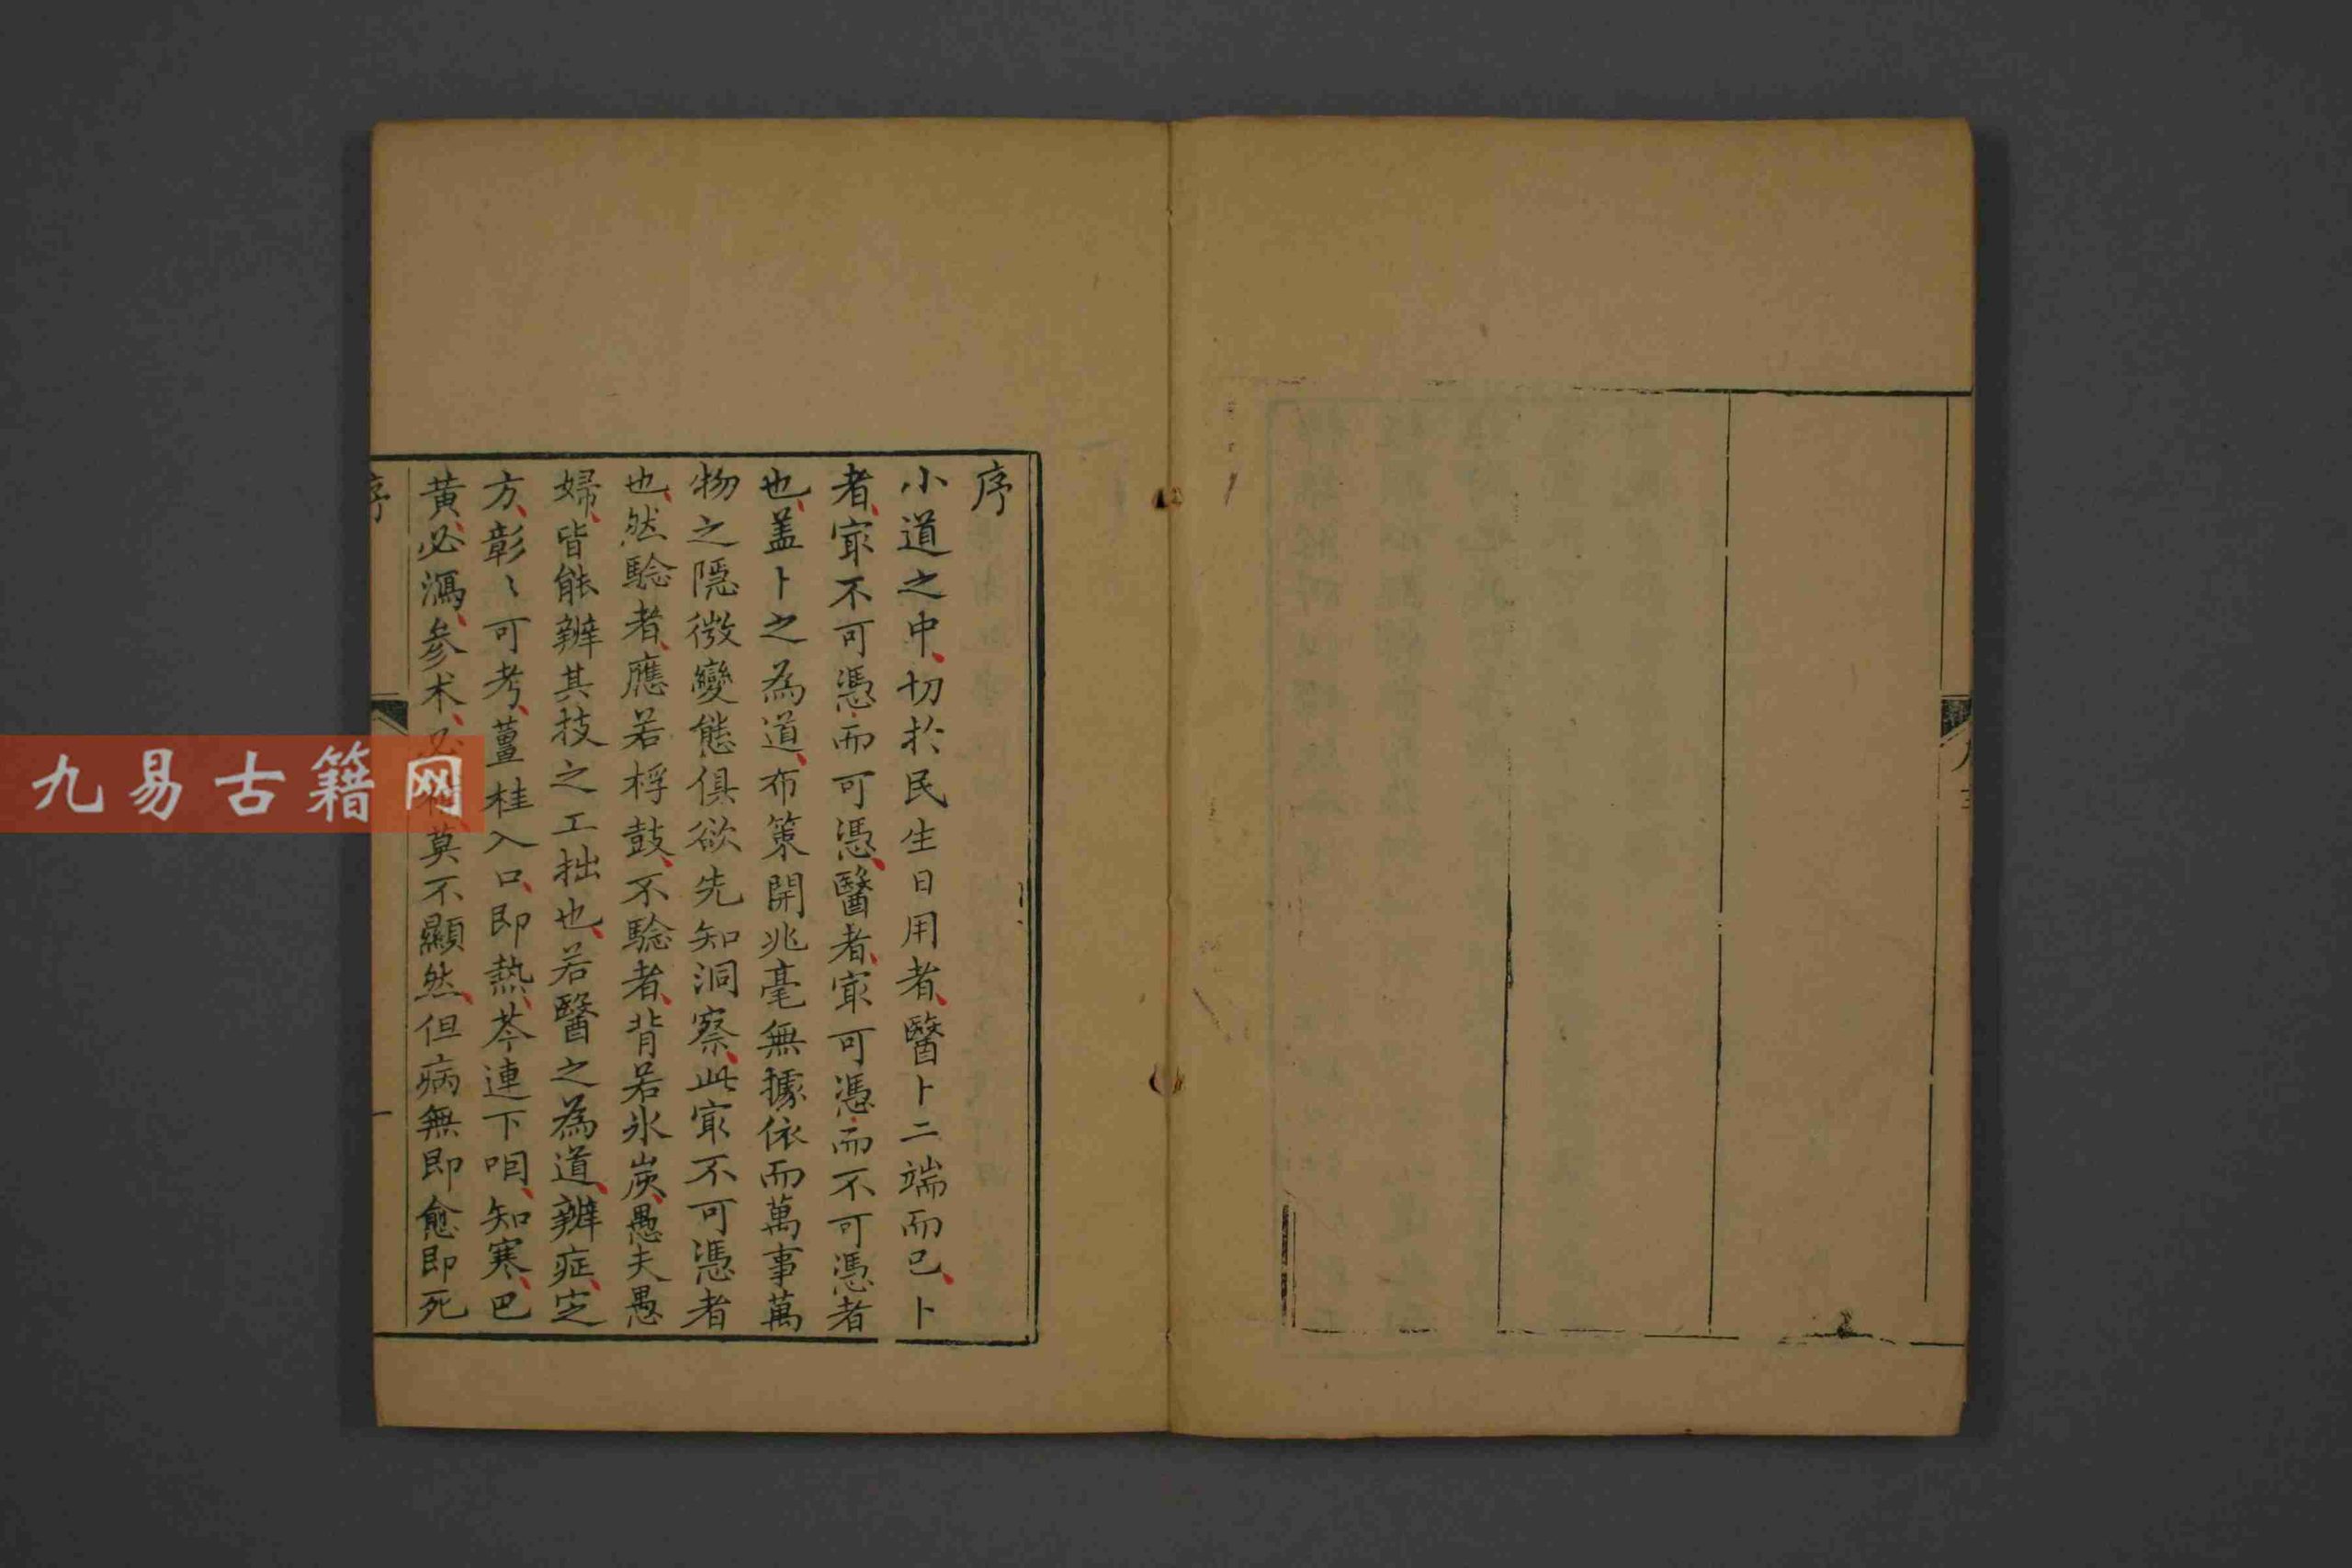 序
小道之中、切於民生日用者、醫卜二端而已、卜
者、㝡不可憑而可憑、醫者、㝡可憑而不可憑者
也、盖卜之為道、布策開兆毫無據依而萬事萬
物之隱微變態俱欲先知洞察、此㝡不可憑者
也、然騐者、應若桴鼓、不騐者、背若氷炭、愚夫愚
婦、皆能辨其技之工拙也、若醫之為道、辨症、定
方、彰〻可考、薑桂入口、即熱、芩連下咽、知寒、巴
黃必瀉、參朮、必補莫不顯然、但病無即愈即死
序
一
九易古籍网